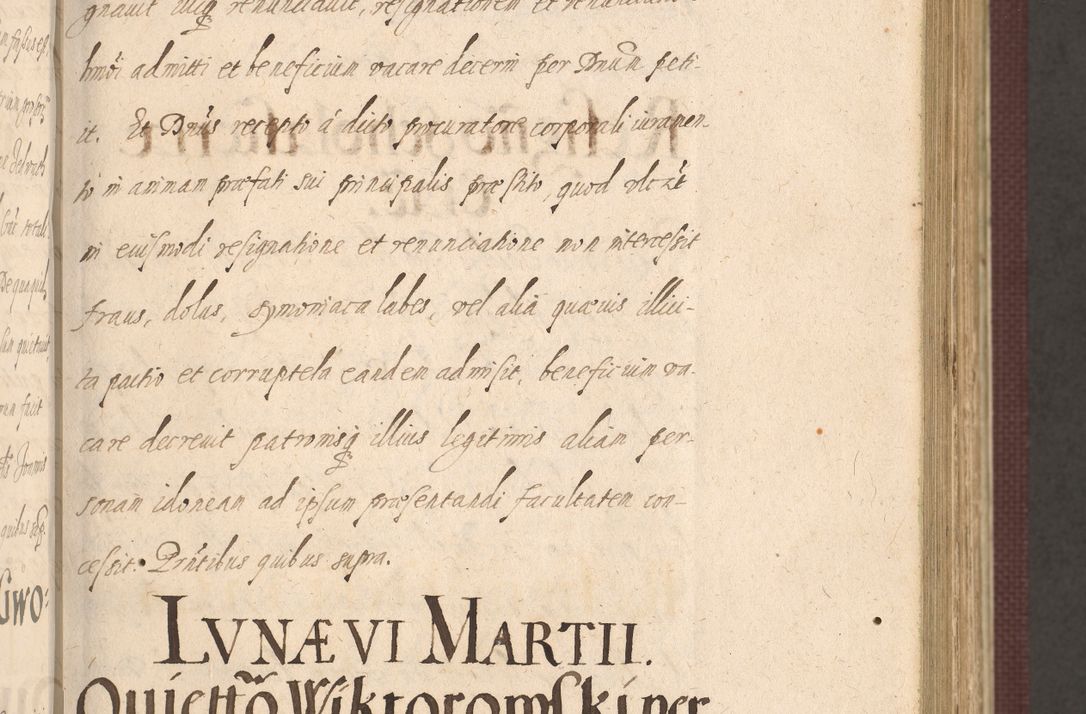 gnavit cucq renunciavit, resignationem et renunciati-
hmoi admitti et beneficium vacare decerni per Dnum peti-
it. Et Dnus recepto á dicto procuratore corporali iuramen-
to in animam præfati sui principalis præstito, quod
in eiusmodi resignatione et renunciatione non intercessit
fraus, dolus, symoniaca labes, vel alia quævis illici-
ta pactio et corruptela eandem admisit, beneficium va-
care decrevit patronisq illius legitimis aliam per-
sonam idoneam ad ipsum præsentandi facultatem con-
cessit. Prntibus quibus supra.
LVNÆ VI MARTII.
Quiettõ Wiktorowski per